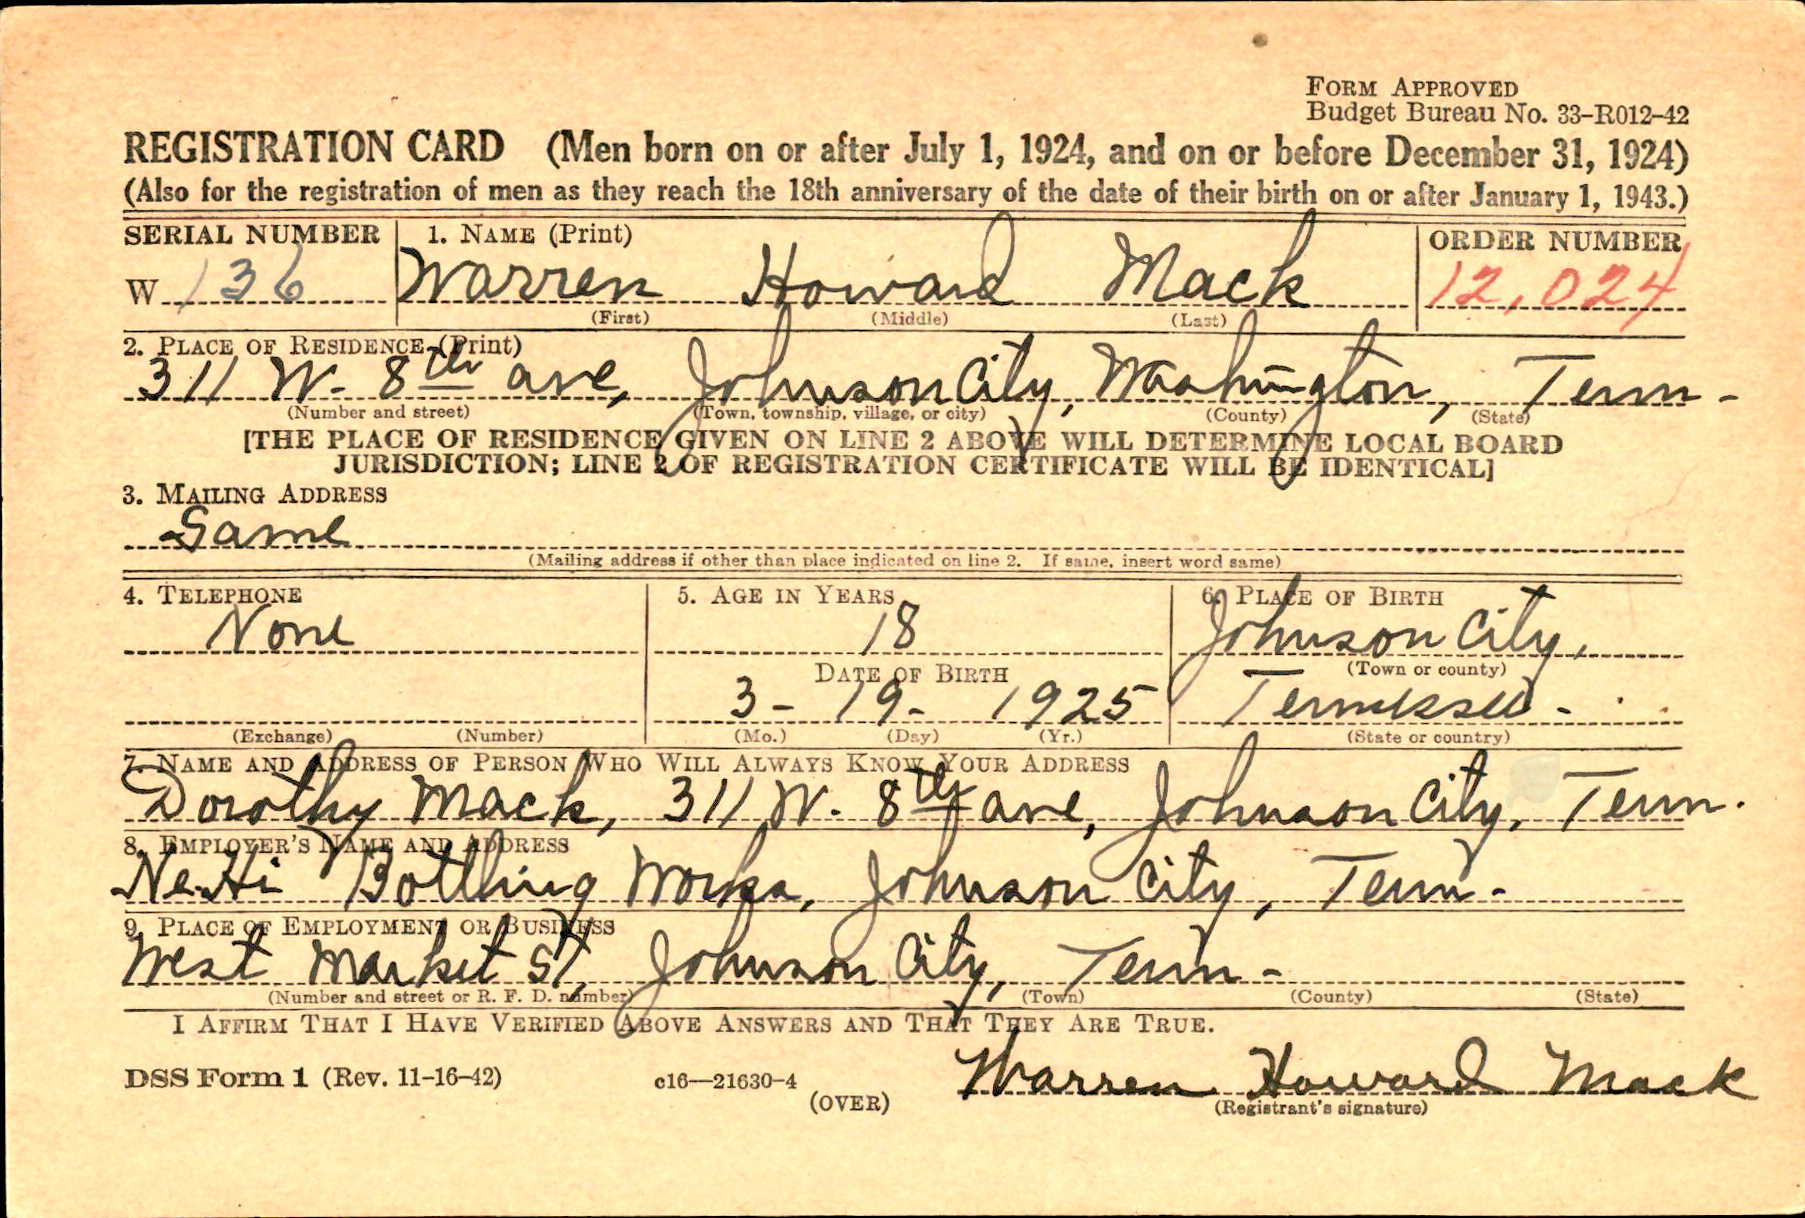 FORM APPROVED
Budget Bureau No. 33-R012-42
REGISTRATION CARD (Men born on or after July 1, 1924, and on or before December 31, 1924)
(Also for the registration of men as they reach the 18th anniversary of the date of their birth on or after January 1, 1943.)
SERIAL NUMBER 1. NAME (Print) ORDER NUMBER
W 136 Warren Howard Mack 12,024
(First) (Middle) (Last)
2. PLACE OF RESIDENCE (Print)
311 W. 8th ave, Johnson City, Washington, Tenn-
(Number and street) (Town, township, village, or city) (County) (State)
[THE PLACE OF RESIDENCE GIVEN ON LINE 2 ABOVE WILL DETERMINE LOCAL BOARD
JURISDICTION; LINE 2 OF REGISTRATION CERTIFICATE WILL BE IDENTICAL]
3. MAILING ADDRESS
Same
(Mailing address if other than place indicated on line 2. If same, insert word same)
4. TELEPHONE 5. AGE IN YEARS 6. PLACE OF BIRTH
None 18 Johnson City,
DATE OF BIRTH (Town or county)
3- 19- 1925 Tennessee-
(Exchange) (Number) (Mo.) (Day) (Yr.) (State or country)
7. NAME AND ADDRESS OF PERSON WHO WILL ALWAYS KNOW YOUR ADDRESS
Dorothy Mack, 311 W. 8th ave, Johnson City, Tenn.
8. EMPLOYER'S NAME AND ADDRESS
Ne-Hi Bottling Works, Johnson City, Tenn-
9. PLACE OF EMPLOYMENT OR BUSINESS
West Market St, Johnson City, Tenn-
(Number and street or R. F. D. number) (Town) (County) (State)
I AFFIRM THAT I HAVE VERIFIED ABOVE ANSWERS AND THAT THEY ARE TRUE.
DSS Form 1 (Rev. 11-16-42) c16—21630-4 Warren Howard Mack
(OVER) (Registrant's signature)